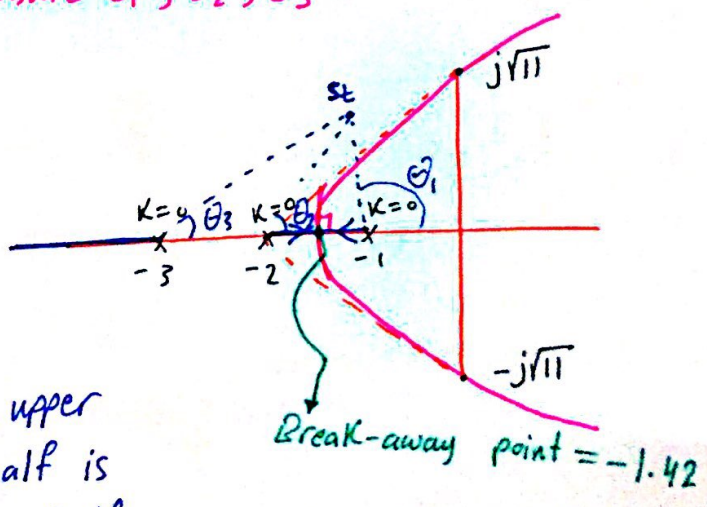 j√11
St
θ₁
K=0 θ₃ K=0 θ₂ K=0
-3 -2 -1
-j√11
upper
alf is
Break-away point = -1.42